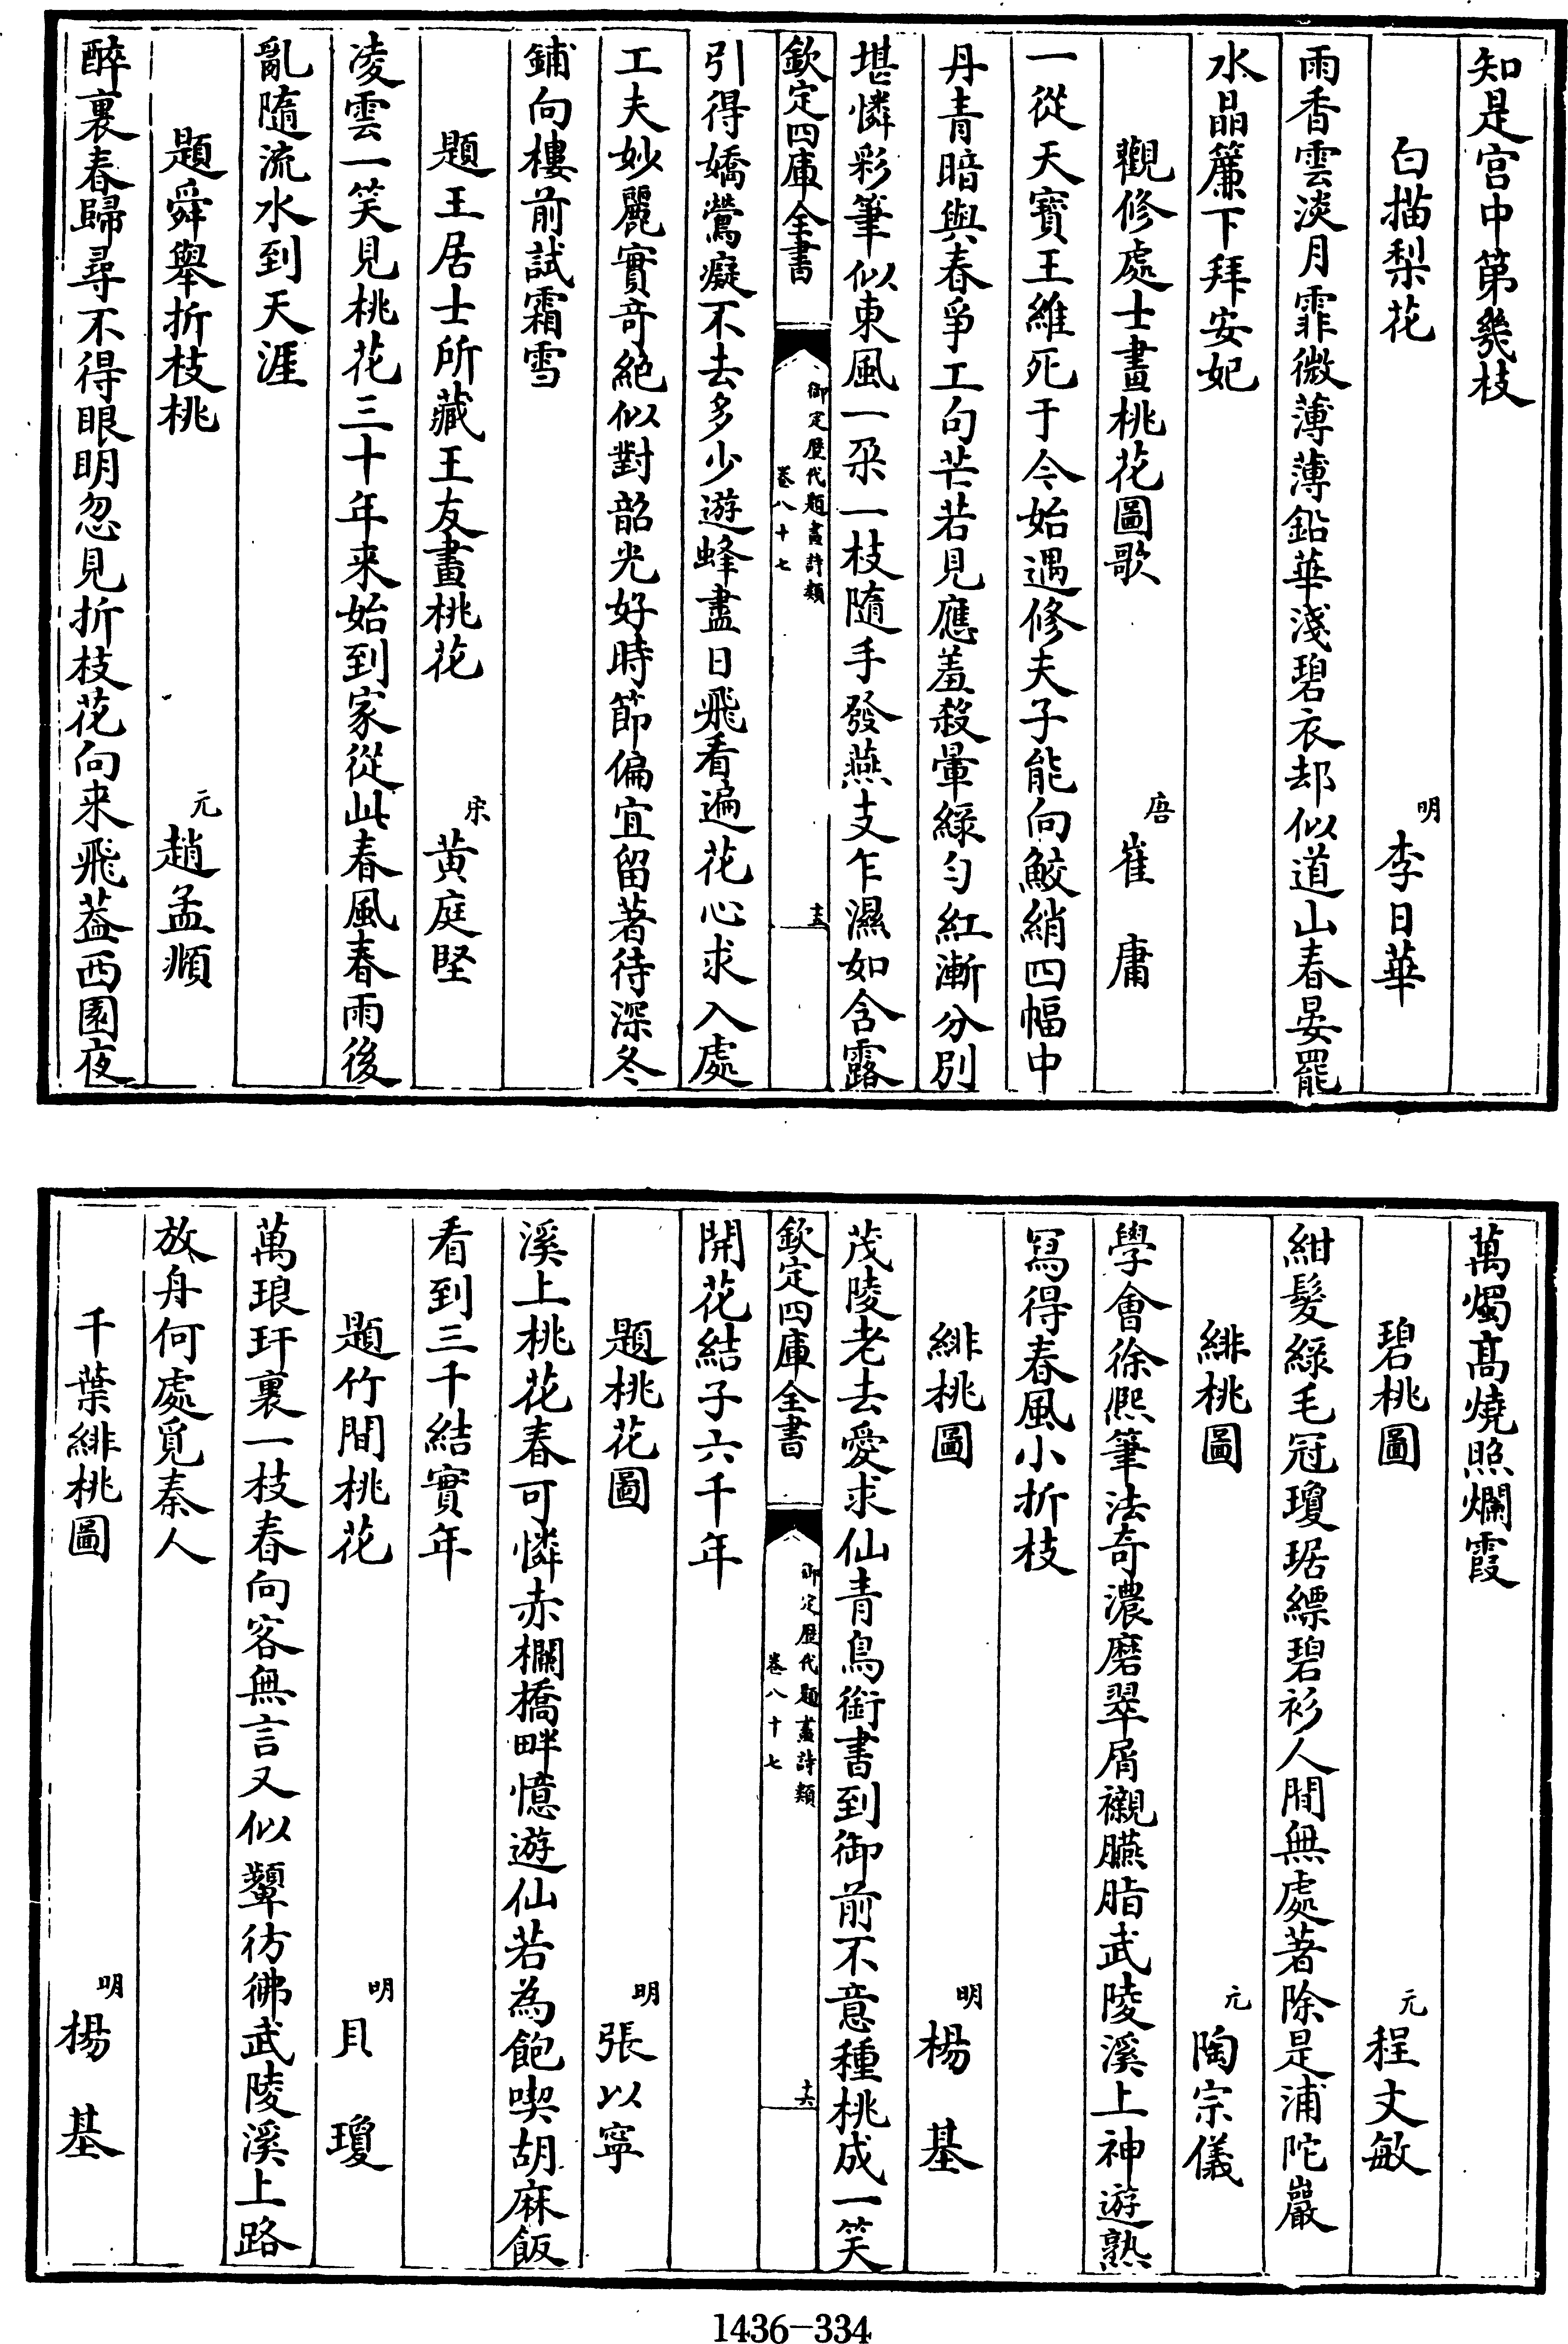 知是宫中第幾枝
白描梨花　明李日華
雨香雲淡月霏微薄薄鉛華淺碧衣却似道山春晏罷
水晶簾下拜安妃
觀修處士畫桃花圖歌　唐崔庸
一從天寶王維死于今始遇修夫子能向鮫綃四幅中
丹青暗與春爭工句芒若見應羞殺暈緑勻紅漸分別
堪憐彩筆似東風一朶一枝隨手發燕支乍濕如含露
欽定四庫全書　御定歷代題畫詩類　卷八十七　十五
引得嬌鶯癡不去多少遊蜂盡日飛看遍花心求入處
工夫妙麗實奇絶似對韶光好時節偏宜留著待深冬
鋪向樓前試霜雪
題王居士所藏王友畫桃花　宋黄庭堅
凌雲一笑見桃花三十年来始到家從此春風春雨後
亂隨流水到天涯
題舜舉折枝桃　元趙孟頫
醉裏春歸尋不得眼明忽見折枝花向来飛蓋西園夜
萬燭髙燒照爛霞
碧桃圖　元程文敏
紺髮緑毛冠瓊琚縹碧衫人間無處著除是浦陀巖
緋桃圖　元陶宗儀
學會徐熈筆法奇濃磨翠屑襯臙脂武陵溪上神遊熟
冩得春風小折枝
緋桃圖　明楊基
茂陵老去愛求仙青鳥銜書到御前不意種桃成一笑
欽定四庫全書　御定歷代題畫詩類　卷八十七　十六
開花結子六千年
題桃花圖　明張以寧
溪上桃花春可憐赤欄橋畔憶遊仙若為飽喫胡麻飯
看到三千結實年
題竹間桃花　明貝瓊
萬琅玕裏一枝春向客無言又似顰彷彿武陵溪上路
放舟何處覓秦人
千葉緋桃圖　明楊基
1436-334